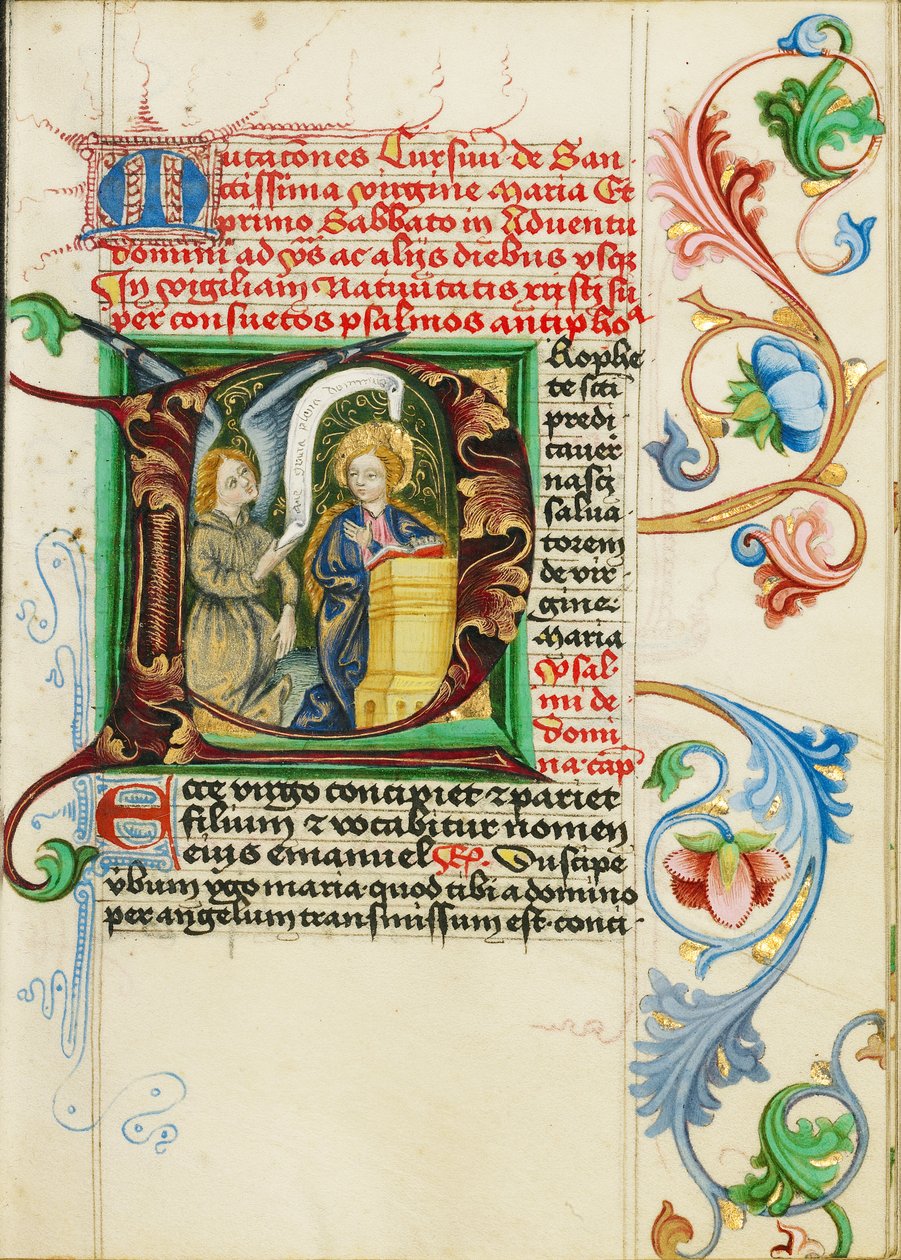 Mutac̄ones Cursuū de Sanctissima virgine Maria Et
primo Sabbato in Aduentu
domini ad vp̄s ac alijs diebus vsq3
In vigiliam Natiuitatis xristi su
per consuetos psalmos antiphoa
Prophe
te scti
predi
cauer̄
nasci
salua
torem
de vir
gine
Maria
psal
mi de
domi
na cap̄
ave gracia plena dominus
Ecce virgo concipiet ⁊ pariet
filium ⁊ vocabitur nomen
eius emanuel R̄p. Suscipe
v̄bum v̄go maria quod tibi a domino
per angelum transmissum est conci